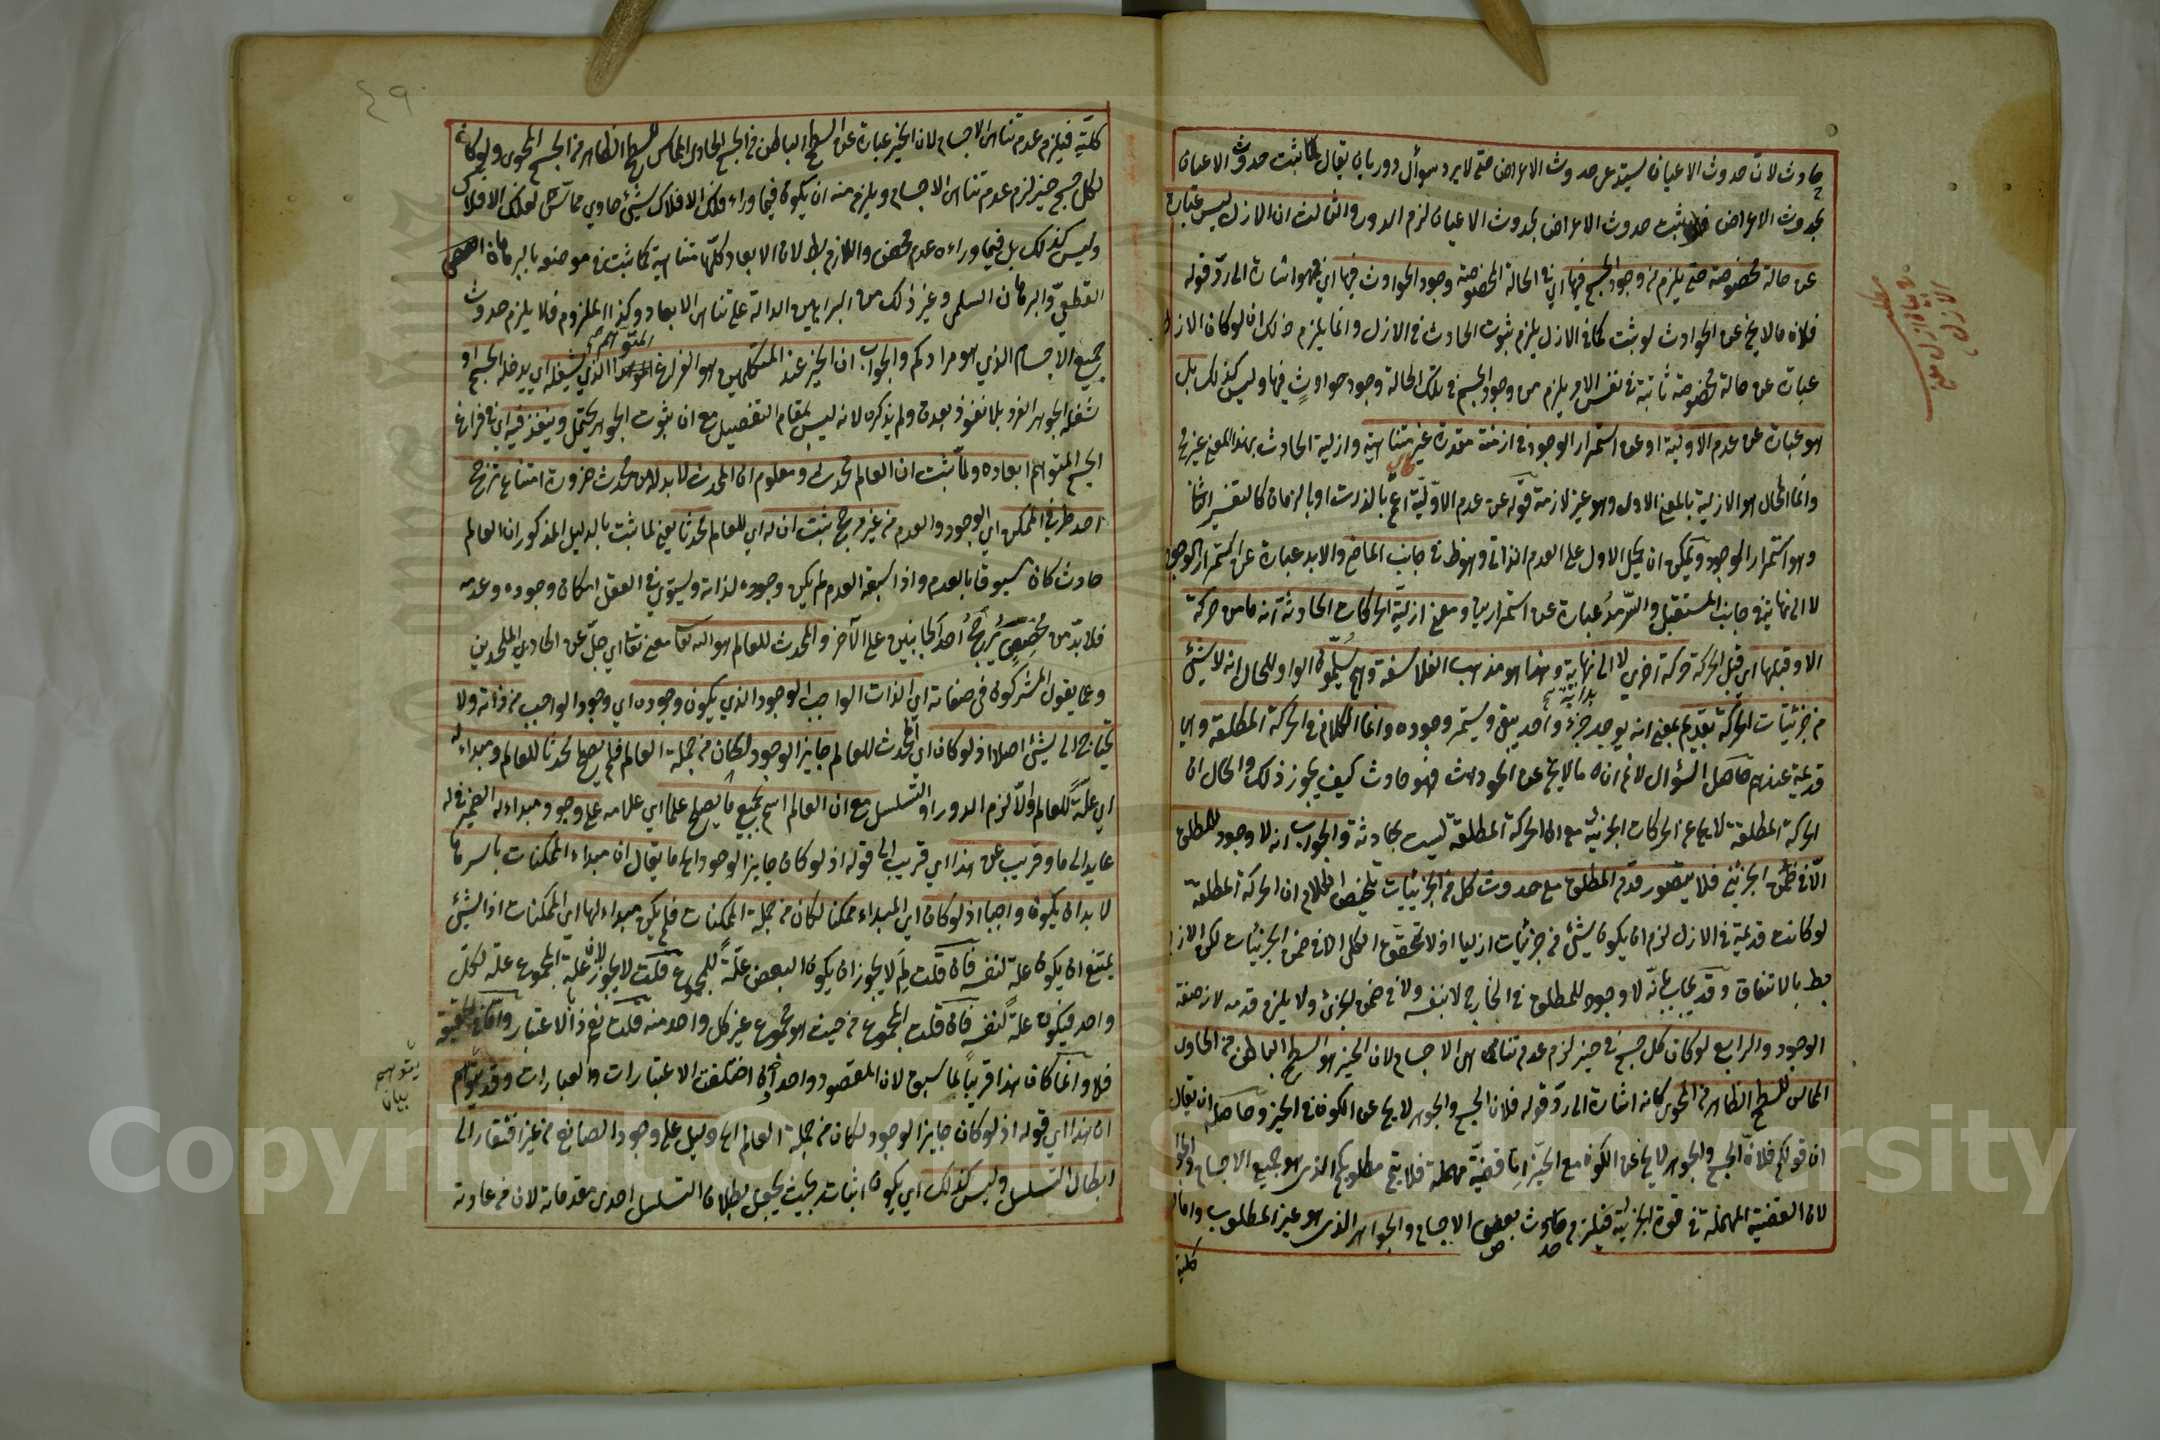 حادث لان حدوث الاعيان يستدعى حدوث الاعراض حتى لا يرد سوال دور بان يقال لما ثبت حدوث الاعيان
بحدوث الاعراض فلو ثبت حدوث الاعراض بحدوث الاعيان لزم الدور والثالث ان الازل ليس عبارة
عن حالة مخصوصة حتى يلزم من وجود الجسم فيها اي في الحالة المخصوصة وجود الحوادث فيها اي فهو اشارة الى رد قوله
فلان ما لا يخ عن الحوادث لو ثبت لكان في الازل يلزم ثبوت الحادث في الازل وانما يلزم ذلك ان لو كان الازل
عبارة عن حالة مخصوصة ثابتة في نفس الامر يلزم من وجود الجسم في تلك الحالة وجود حوادث فيها وليس كذلك بل
هو عبارة عن عدم الاولية او عن استمرار الوجود في ازمنة مقدرة غير متناهية وازلية الحادث بهذا المعنى غير مح
وانما المحال هو الازلية بالمعنى الاول وهو غير لازمة قوله عن عدم الاولية اعم بالذات او بالزمان كالتفسير الثاني
وهو استمرار الوجود ويمكن ان يحمل الاول على العدم الذاتي وهو ظ في جانب الماضي والابد عبارة عن استمرار الوجود
لا الى نهاية في جانب المستقبل والسرمد عبارة عن استمرارهما ومعنى ازلية الحركات الحادثة انه ما من حركة
الا وقبلها اي قبل الحركة حركة اخرى لا الى نهاية وهذا هو مذهب الفلاسفة وهم يسلمون الواو للحال انه لا شيئ
بداية
من جزئيات الحركة بقديم بمعنى انه يوجد جزء واحد يبقى ويستمر وجوده وانما الكلام في الحركة المطلقة وهي
قديمة عندهم حاصل السؤال لا نم ان ما لا يخ عن الحوادث فهو حادث كيف يجوز ذلك والحال ان
الحركة المطلقة لا يجامع الحركات الجزئية مع ان الحركة المطلقة ليست بحادثة والجواب انه لا وجود للمطلق
الا في ضمن الجزئي فلا يتصور قدم المطلق مع حدوث كل من الجزئيات تلخيص الكلام ان الحركة المطلقة
لو كانت قديمة في الازل لزم ان يكون شيئ من جزئيات ازليا اذ لا تحقق الكلي الا في ضمن الجزئيات لكن اللازم
بط بالاتفاق وقد يجاب بانه لا وجود للمطلق في الخارج لا بنفسه ولا في ضمن الجزئي ولا يلزم قدمه لانه صفة
الوجود والرابع لو كان كل جسم في حيز لزم عدم تناهي الاجسام لان الحيز هو السطح الباطن من الحاوي
المماس للسطح الظاهر من المحوي كانه اشارة الى رد قوله فلان الجسم والجوهر لا يخ عن الكون في الحيز وحاصله ان يقال
ان قولكم فلان الجسم والجوهر لا يخ عن الكون مع الحيز اما قضية مهملة فلا يتم مطلوبكم الذي هو جميع الاجسام والجواهر
لان القضية المهملة في قوة الجزئية فيلزم حدوث بعض الاجسام والجواهر الذي هو غير المطلوب واما
كلية
كلية فيلزم عدم تناهي الاجسام لان الحيز عبارة عن السطح الباطن من الجسم الحاوي المماس للسطح الظاهر من الجسم المحوي ولو كان
لكل جسم حيز لزم عدم تناهي الاجسام ويلزم منه ان يكون فيما وراء فلك الافلاك شيئ حاوي مماس لفلك الافلاك
وليس كذلك بل فيما وراءه عدم محض واللازم بط لان الابعاد كلها متناهية كما ثبت في موضعه بالبرهان
القطعي والبرهان السلمي وغير ذلك من البراهين الدالة على تناهي الابعاد وكذا الملزوم فلا يلزم حدوث
المتوهم
جميع الاجسام الذي هو مرادكم والجواب ان الحيز عند المتكلمين هو الفراغ الذي يشغله اي يدخله الجسم او
شغله الجوهر الفرد بلا نفوذ بعده ولم يذكره لانه ليس بمقام التفصيل مع ان ثبوت الجوهر يحتمل وينفذ فيه اي في فراغ
الجسم المتوهم ابعاده ولما ثبت ان العالم محدث ومعلوم ان المحدث لا بد له من محدث ضرورة امتناع ترجح
احد طرفي الممكن اي الوجود والعدم من غير مرجح ثبت ان له اي للعالم محدثا يعني لما ثبت بالدليل المذكور ان العالم
حادث كان مسبوقا بالعدم واذا سبقه العدم لم يكن وجوده لذاته ويستوي في العقل امكان وجوده وعدمه
فلا بد من مخصص يرجح احد الجانبين على الآخر والمحدث للعالم هو الله تعالى معنى تعالى اي جل عن الحاد الملحدين
وعما يقول المشركون في صفاته اي الذات الواجب الوجود الذي يكون وجوده اي وجود الواجب من ذاته ولا
يحتاج الى شيئ اصلا اذ لو كان اي المحدث للعالم جايز الوجود لكان من جملة العالم فلم يصلح محدثا للعالم ومبداء له
اي علة للعالم والا لزم الدور او التسلسل مع ان العالم اسم لجميع ما يصلح علما اي علامة على وجود مبداء له الضمير في له
عايد الى ما وقريب من هذا اي قريب الى قوله اذ لو كان جايز الوجود اه ما يقال ان مبداء الممكنات باسرها
لا بد ان يكون واجبا اذ لو كان اي المبداء ممكنا لكان من جملة الممكنات فلم يكن مبداء لها اي الممكنات اذ الشيئ
يمتنع ان يكون علة لنفسه فان قلت لم لا يجوز ان يكون البعض علة للمجموع قلت لا يجوز لان علة المجموع علة لكل
واحد فيكون علة لنفسه فان قلت المجموع من حيث هو مجموع غير كل واحد منه قلت نعم بالاعتبار واما في الحقيقة
فلا وانما كان هذا قريبا لما سبق لان المقصود واحد وان اختلفت الاعتبارات والعبارات وقد يتوهم
ان هذا اي قوله اذ لو كان جايز الوجود لكان من جملة العالم اه دليل على وجود الصانع من غير افتقار الى
ابطال التسلسل وليس كذلك اي يكون اثباته بحيث يجعل بطلان التسلسل احدى مقدماته لان من عادته
يتوهم
بيان